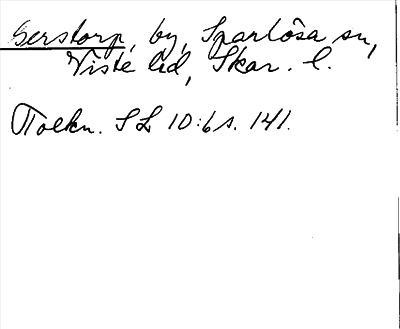 Gerstorp, by, Sparlösa sn,
Viste hd, Skar. l.
Tolkn. SL 10:6 s. 141.